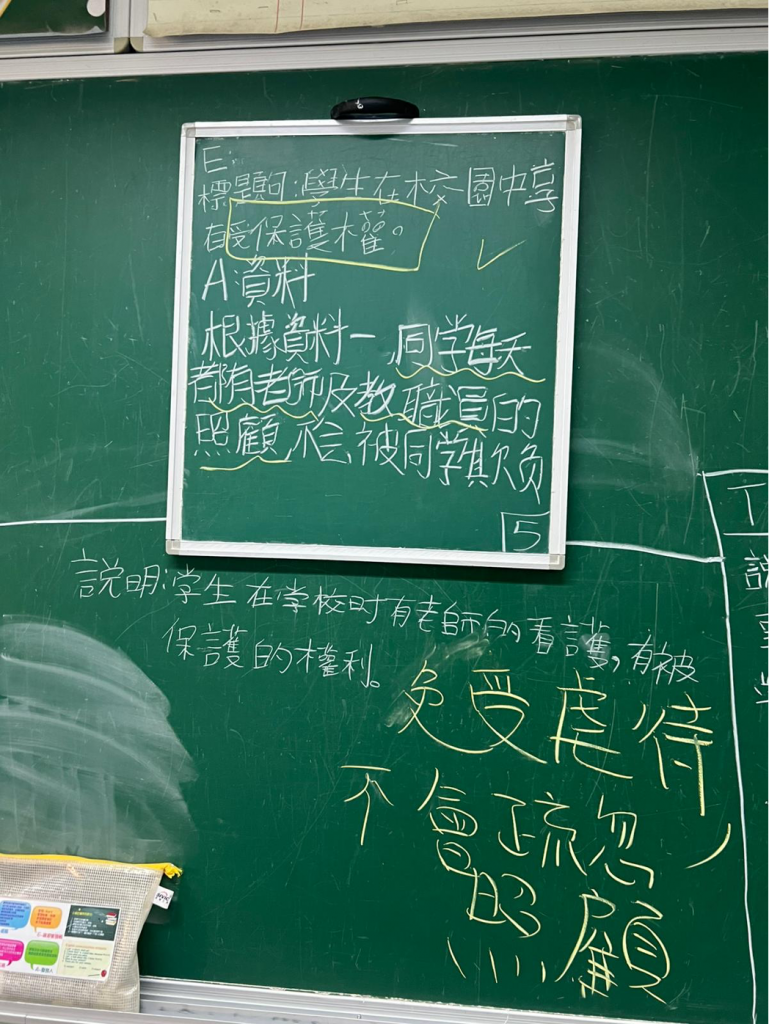 E:
標題句:學生在校園中享
有受保護權。
A:資料
根據資料一,同学每天
都有老師及教職員的
照顧,不会被同學欺负
5
説明:学生在学校时有老師的看護,有被
保護的權利。
免受虐待,
不會疏忽
照顧